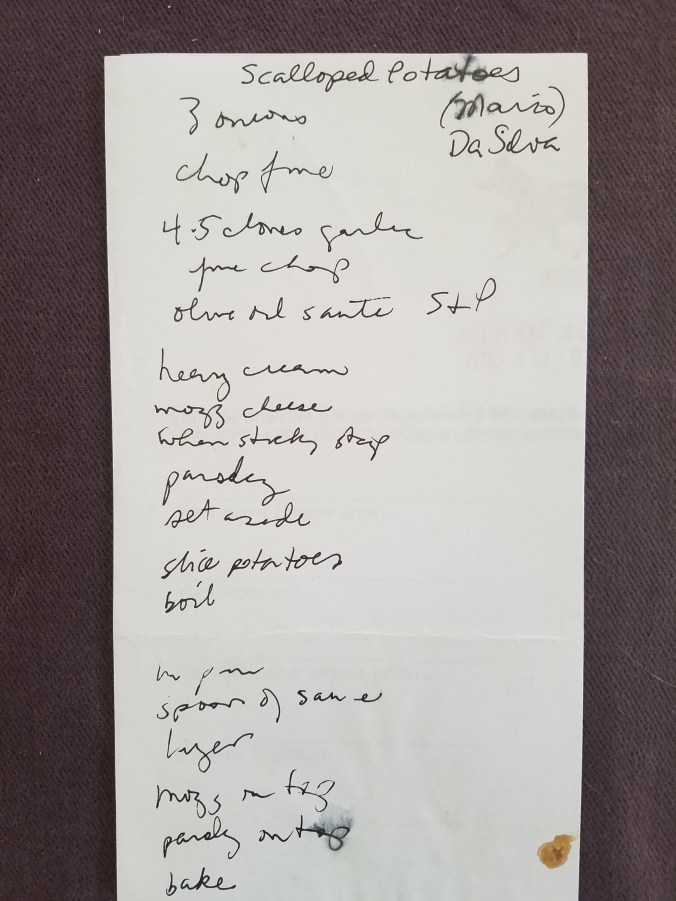 Scalloped Potatoes
(Mario)
Da Silva
3 onions
chop fine
4-5 cloves garlic
fine chop
olive oil saute S+P
heavy cream
mozz cheese
when sticky stop
parsley
set aside
slice potatoes
boil
in pan
spoon of sauce
layer
mozz on top
parsley on top
bake